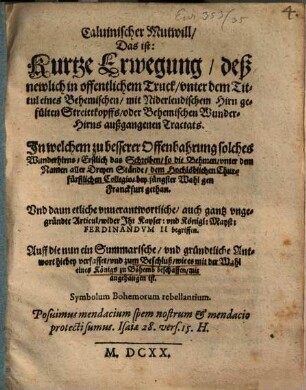 Eur. 353/35
4.
Caluinischer Mutwill/
Das ist:
Kurtze Erwegung / deß
newlich in offentlichem Truck/ vnter dem Tit-
tul eines Behemischen / mit Niderlendischem Hirn ge-
fülten Streittkopffs/ oder Behemischen Wunder-
Hirns außgangenen Tractats.
In welchem zu besserer Offenbahrung solches
Wunderhirns/ Erstlich das Schreiben/ so die Behmen/ vnter dem
Namen aller Dreyen Stände/ dem Hochlöblichen Chur-
fürstlichen Collegio/ bey jüngster Wahl gen
Franckfurt gethan.
Vnd dann etliche vnuerantwortliche/ auch gantz vnge-
gründte Articul/ wider Ihr Kayser: vnd Königl: Mayst:
FERDINANDVM II begriffen.
Auff die nun ein Summarische/ vnd gründtliche Ant-
wort hieher verfasset/ vnd zum Beschluß/ wie es mit der Wahl
eines Königs zu Böhemb beschaffen/ mit
angehängt ist.
Symbolum Bohemorum rebellantium.
Posuimus mendacium spem nostram & mendacio
protecti sumus. Isaiæ 28. vers. 15. H.
M. DCXX.